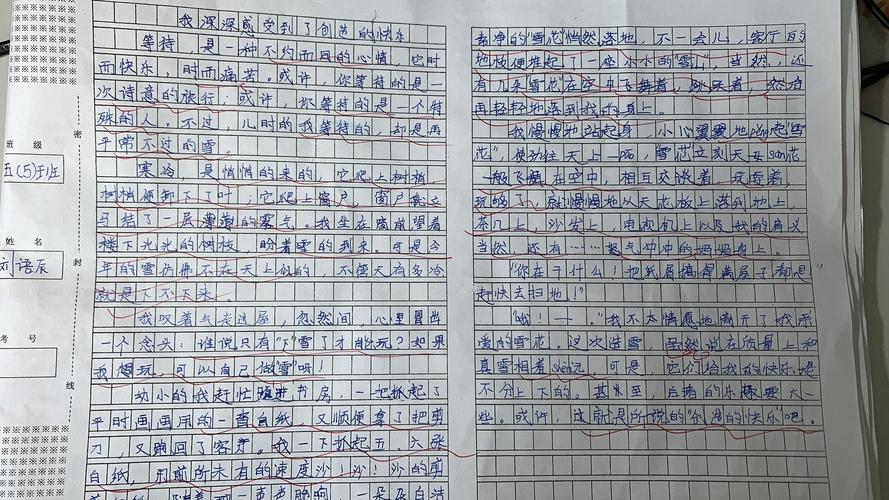 班级
五(5)班
姓名
刘语辰
考号
密
封
线
我深深感受到了创造的快乐
等待，是一种不约而同的心情，它时
而快乐，时而痛苦。或许，你等待的是一
次诗意的旅行；或许，你等待的是一个特
殊的人。不过，儿时的我等待的，却是再
平常不过的雪。
寒冷，是悄悄的来的，它爬上树梢，
树梢便卸下了叶；它爬上窗户，窗户就立
马结了一层薄薄的雾气。我坐在窗前望着
楼下光光的树枝，盼着雪的到来，可是今
年的雪仿佛不在天上似的，不管天有多冷
就是下不下来。
我叹着气走进屋，忽然间，心里冒出
一个念头：谁说只有"下"雪了才能玩？如果
我想玩，可以自己做"雪"呀！
幼小的我赶忙跑进书房，一把抓起了
平时画画用的一沓白纸，又顺便拿了把剪
刀，又跑回了客厅。我一下抓起五、六张
白纸，用前所未有的速度沙！沙！沙的剪
一声声脆响，一朵朵白洁
素净的"雪花"悄然落地，不一会儿，客厅的
地板便堆起了一座小小的"雪"山，当然，还
有几朵"雪花"在空中飞舞着，跳跃着，然后
再轻轻地落到我的身上。
我慢慢地站起身，小心翼翼地peng起"雪
花"，使劲往天上一po，"雪花"立刻天女san花
一般飞舞在空中，相互交谈着，玩耍着，
玩够了，就慢慢地从天花板上落到地上，
茶几上，沙发上，电视机上以及我的肩上
当然，还有……怒气冲冲的妈妈身上。
"你在干什么！把纸屑搞得满屋子都是"
赶快去扫地！"
"哦！一。"我不太情愿地离开了我那
凌的雪花。这次造雪，虽然说在质量上和
真雪相差shen远，可是，它们给我的快乐是
不分上下的。甚至，自造的乐趣要大一
些。或许，这就是所说的"创造的快乐"吧。